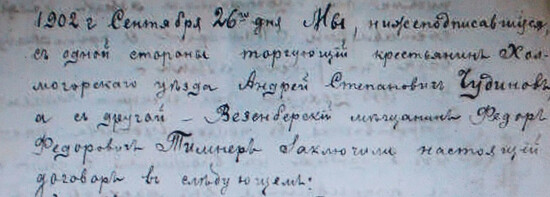 1902 г Сентября 26го дня Мы, нижеподписавшiеся,
съ одной стороны торгующiй крестьянинъ Хол-
могорскаго уѣзда Андрей Степановичъ Чудиновъ
а съ другой – Везенберскiй мѣщанинъ Федоръ
Федоровичъ Тимнеръ Заключили настоящiй
договоръ въ слѣдующемъ: